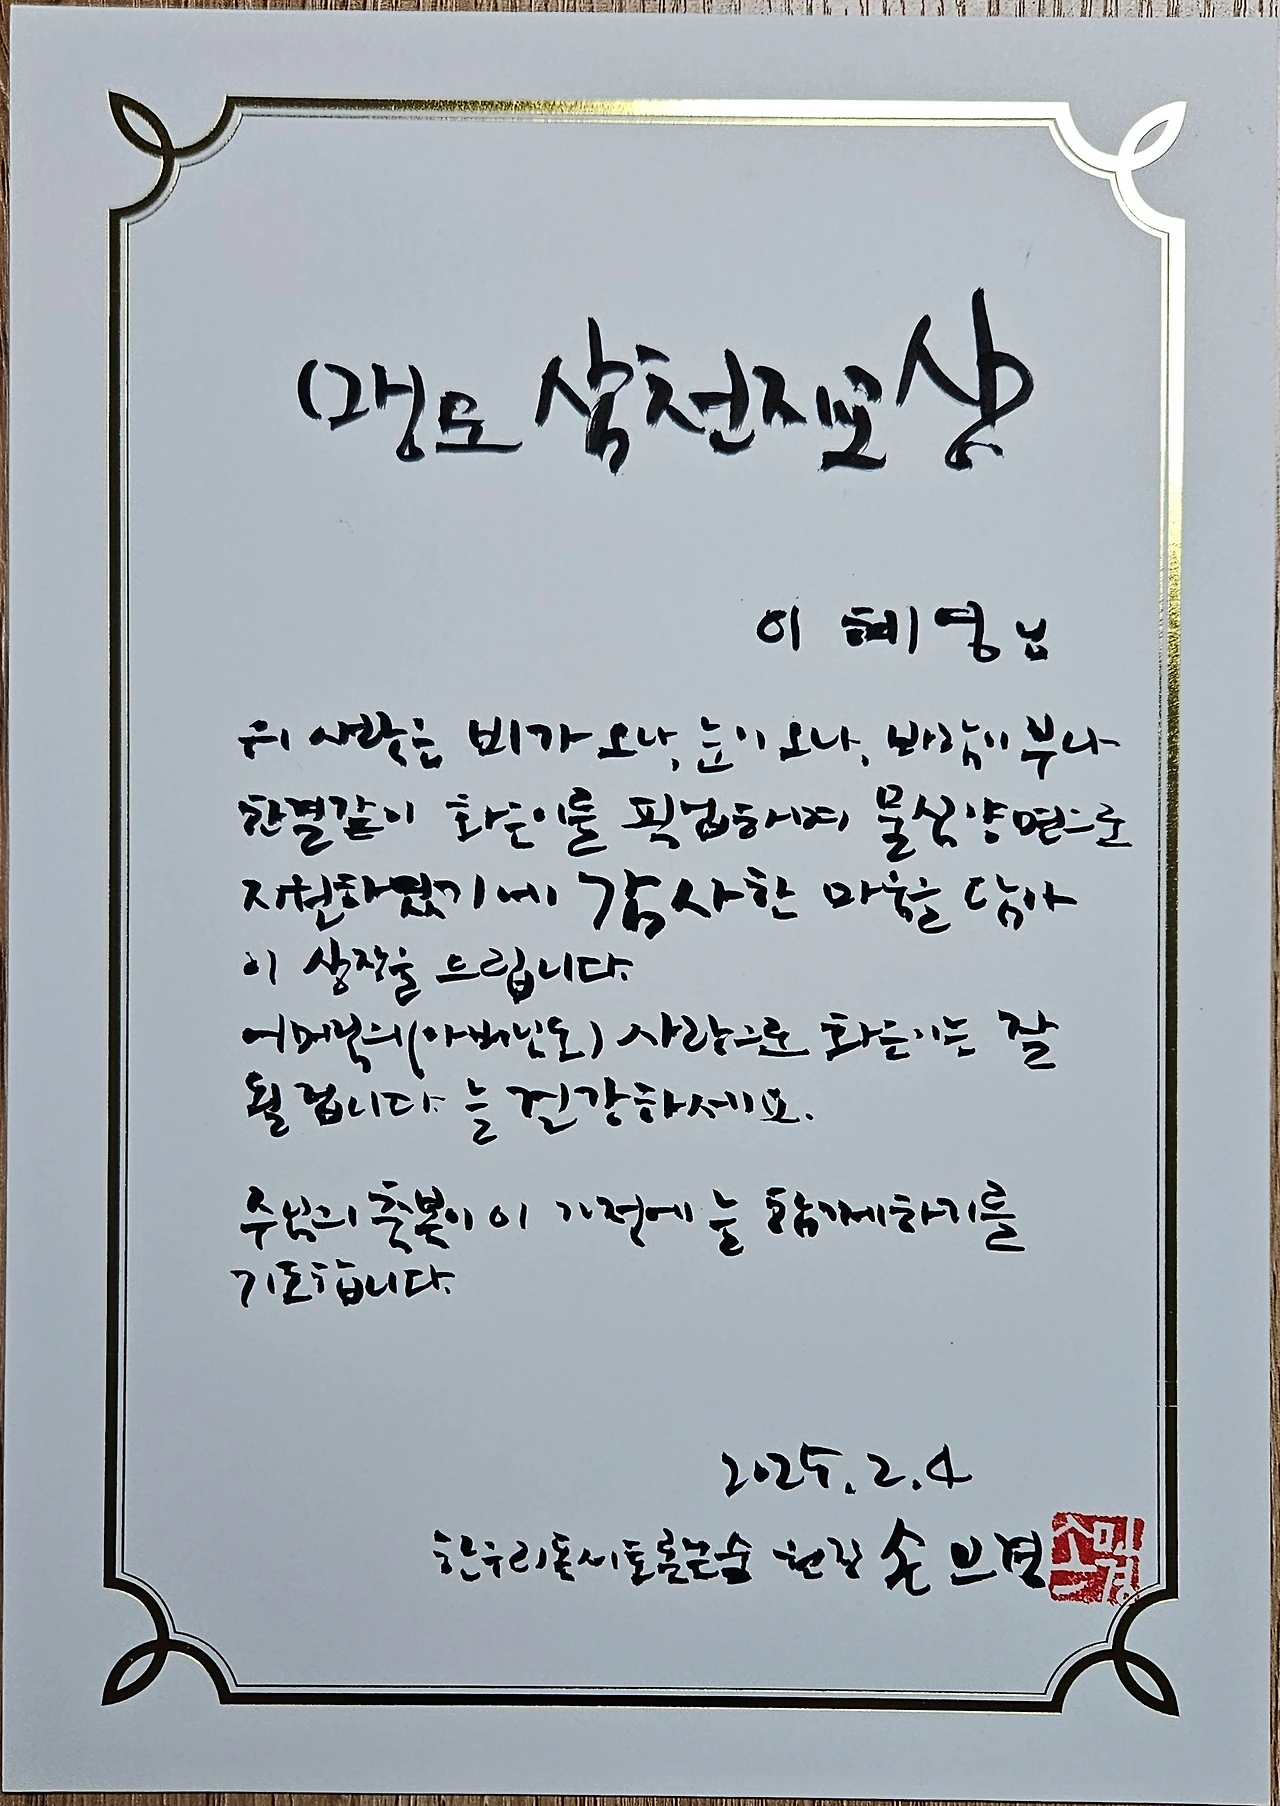 맹모삼천지교상
이 혜 영 님
위 사람은 비가 오나, 눈이 오나, 바람이 부나
한결같이 화은이를 픽업하여 물심양면으로
지원하였기에 감사한 마음을 담아
이 상장을 드립니다.
어머니의(아버님도) 사랑으로 화은이는 잘
될 겁니다. 늘 건강하세요.
주님의 축복이 이 가정에 늘 함께하기를
기도합니다.
2025. 2. 4
한우리독서토론논술 원장 손미경
손미경